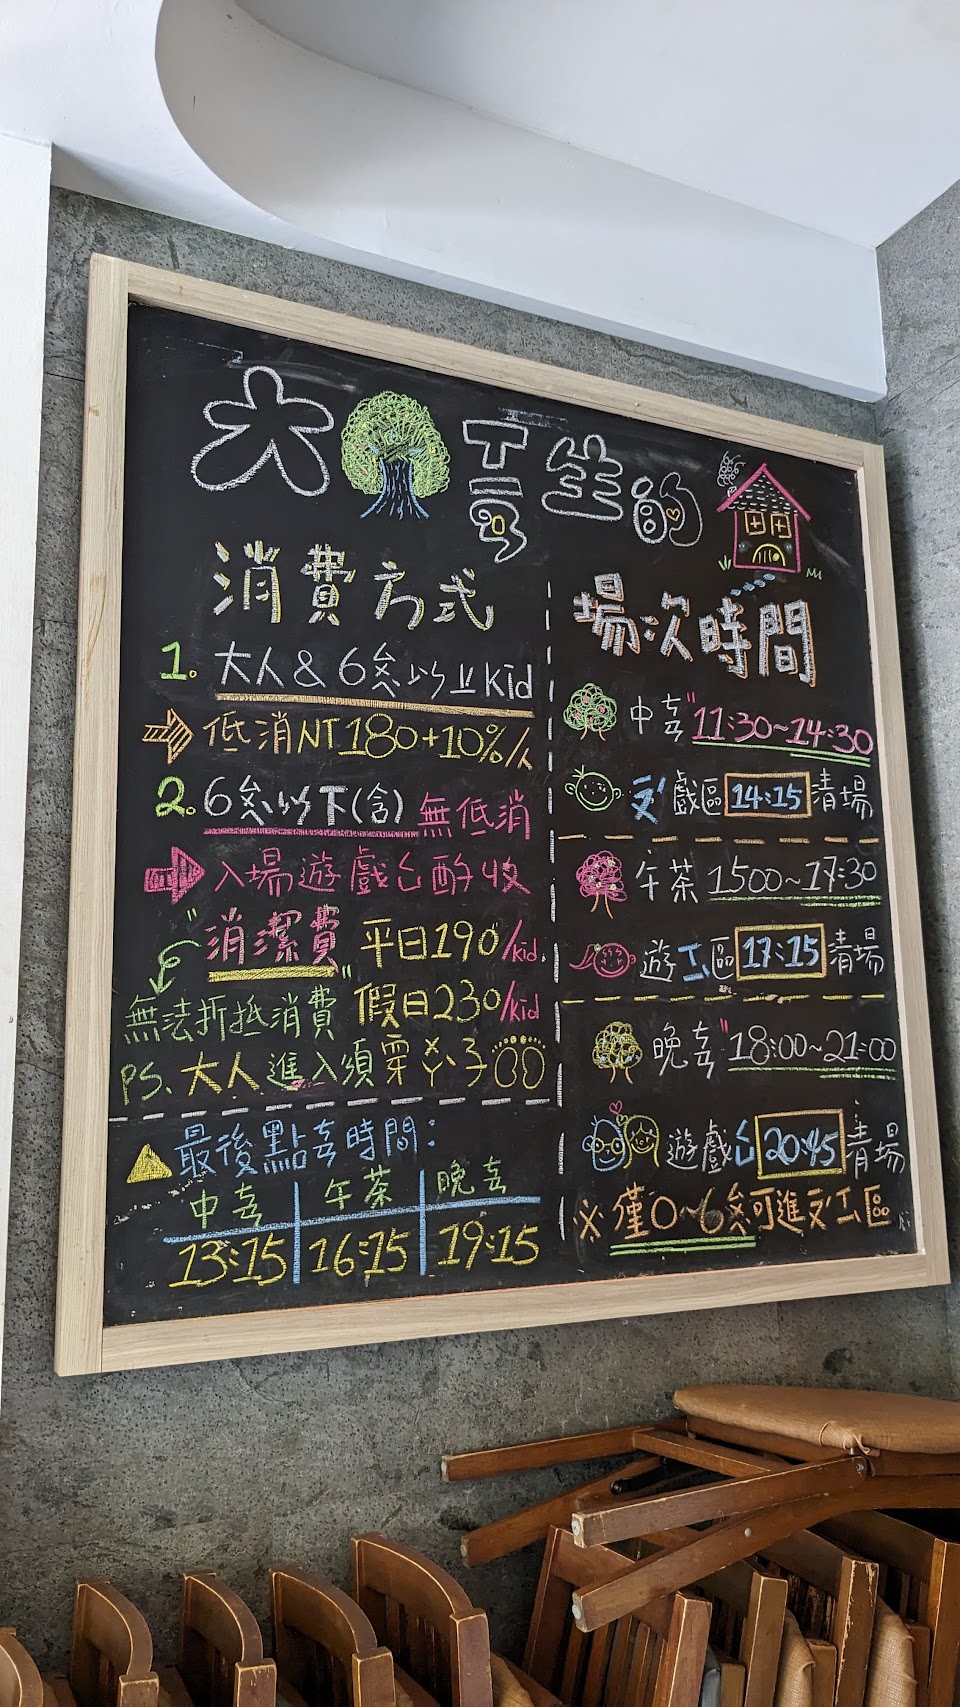 大ㄒㄧㄢ生的
消費方式
1. 大人&6歲以上kid
低消NT180+10%/人
2. 6歲以下(含)無低消
入場遊戲ㄑ酌收
"消潔費" 平日190/kid.
無法折抵消費 假日230/kid
PS. 大人進入須穿ㄨㄚ子
最後點餐時間:
中餐 午茶 晚餐
13:15 16:15 19:15
場次時間
中餐" 11:30~14:30
戲區 14:15 清場
午茶 1500~17:30
遊ㄒㄧ區 17:15 清場
晚餐" 18:00~21:00
遊戲ㄑ 20:45 清場
※僅0~6歲可進區